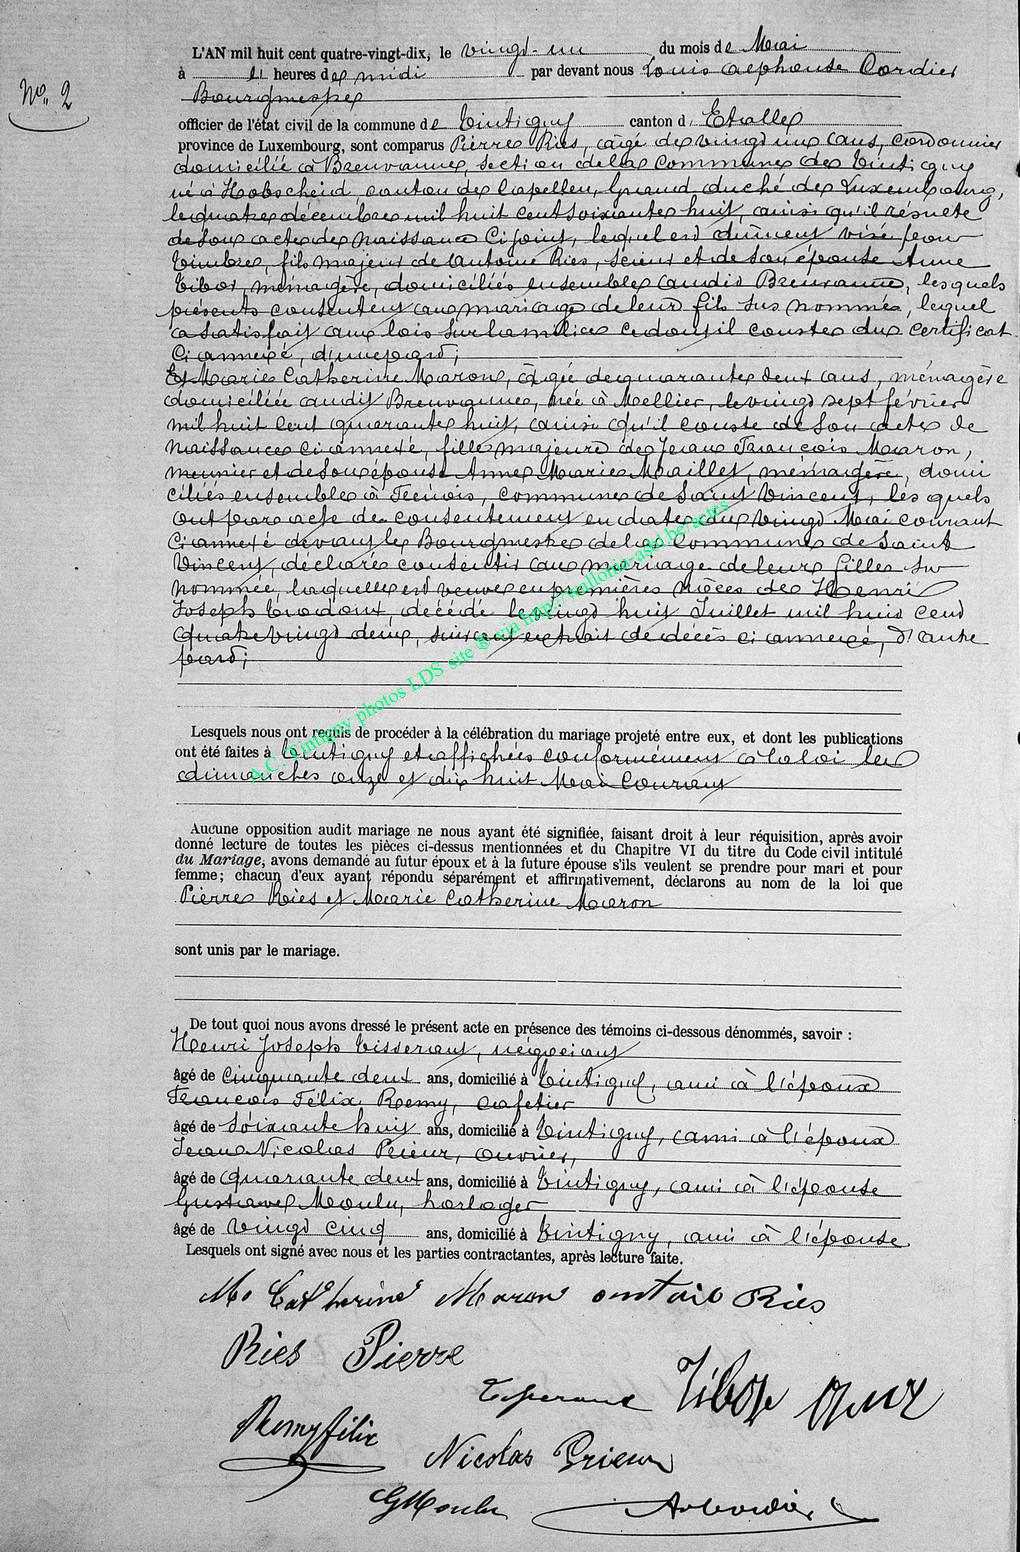 No. 2
L'AN mil huit cent quatre-vingt-dix, le vingt-un du mois de Mai
à heures de midi par devant nous Louis Alphonse Cordier
Bourgmestre
officier de l'état civil de la commune de Tintigny canton d' Etalle
province de Luxembourg, sont comparus Pierre Ries, âgé de vingt une ans, cordonnier
domicilié à Breuvanne, section de la commune de Tintigny
né à Hobscheid, canton de Capellen, Grand duché de Luxembourg,
le quatre décembre mil huit cent soixante huit, ainsi qu'il résulte
de son acte de naissance ci joint, lequel est dûment visé pour
timbre, fils majeur de Antoine Ries, scieur et de son épouse Anne
Tibor, ménagère, domiciliés ensemble audit Breuvanne, lesquels
présents consentent au mariage de leur fils sus nommé, lequel
a satisfait aux lois sur la milice ce dont il conste du certificat
ci annexé, d'une part;
Et Marie Catherine Maron, âgée de quarante deux ans, ménagère
domiciliée audit Breuvanne, née à Mellier, le vingt sept février
mil huit cent quarante huit, ainsi qu'il conste de son acte de
naissance ci annexé, fille majeure de Jean François Maron,
meunier et de son épouse Anne Marie Maillet, ménagère, domi
ciliés ensemble à Frenois, commune de Saint Vincent, les quels
ont par acte de consentement en date du vingt Mai courant
ci annexé devant le Bourgmestre de la commune de Saint
Vincent, déclaré consentir au mariage de leur fille sus
nommée, laquelle est veuve en premières nôces de Henri
Joseph décédé le vingt huit Juillet mil huit cent
quatre vingt deux, suivant extrait de décès ci annexé, d'autre
part;
A.C. Tintigny photos LDS site @ via http://wallonia-asbl.be/actes
Lesquels nous ont requis de procéder à la célébration du mariage projeté entre eux, et dont les publications
ont été faites à Tintigny et affichées conformément à la loi les
dimanches onze et dix huit Mai courant
Aucune opposition audit mariage ne nous ayant été signifiée, faisant droit à leur réquisition, après avoir
donné lecture de toutes les pièces ci-dessus mentionnées et du Chapitre VI du titre du Code civil intitulé
du Mariage, avons demandé au futur époux et à la future épouse s'ils veulent se prendre pour mari et pour
femme; chacun d'eux ayant répondu séparément et affirmativement, déclarons au nom de la loi que
Pierre Ries et Marie Catherine Maron
sont unis par le mariage.
De tout quoi nous avons dressé le présent acte en présence des témoins ci-dessous dénommés, savoir :
Henri Joseph Tisserant, négociant
âgé de cinquante deux ans, domicilié à Tintigny, ami à l'époux
François Félix Remy, cafetier
âgé de soixante huit ans, domicilié à Tintigny, ami à l'époux
Jean Nicolas Prieur, ouvrier,
âgé de quarante deux ans, domicilié à Tintigny, ami à l'épouse
Gustave Moulu, horloger
âgé de vingt cinq ans, domicilié à Tintigny, ami à l'épouse
Lesquels ont signé avec nous et les parties contractantes, après lecture faite.
M. Catherine Maron Ries
Ries Pierre
Tisserant Tibor
Remy félix
Nicolas Prieur
G Moulu